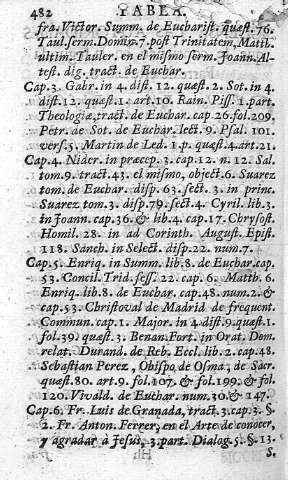 482 TABLA.
fra. Victor. Summ. de Eucharist. quæst. 76.
Taul. serm. Domin. 7. post Trinitatem, Matth.
ultim. Tauler. en el mismo serm. Joann. Al-
test. dig. tract. de Euchar.
Cap. 3. Gabr. in 4. dist. 12. quæst. 2. Sot. in 4.
dist. 12. quæst. 1. art. 10. Rain. Piss. 1. part.
Theologiæ, tract. de Euchar. cap 26. fol. 209.
Petr. de Sot. de Euchar. lect. 9. Psal. 101.
vers. 5. Martin de Led. 1. p. quæst. 4. art. 21.
Cap. 4. Nider. in præcep. 3. cap. 12. n. 12. Sal.
tom. 9. tract. 43. el mismo, object. 6. Suarez
tom. de Euchar. disp. 63. sect. 3. in princ.
Suarez tom. 3. disp. 79. sect. 4. Cyril. lib. 3.
in Joann. cap. 36. & lib. 4. cap. 17. Chrysost.
Homil. 28. in ad Corinth. August. Epist.
118. Sanch. in Select. disp. 22. num. 7.
Cap. 5. Enriq. in Summ. lib. 8. de Euchar. cap.
53. Concil. Trid. sess. 22. cap. 6. Matth. 6.
Enriq. lib. 8. de Euchar. cap. 48. num. 2. &
cap. 53. Christoval de Madrid de frequent.
Commun. cap. 1. Major. in 4. dist. 9. quæst. 1.
fol. 39. quæst. 3. Benan. Fort. in Orat. Dom.
relat. Durand. de Reb. Eccl. lib. 2. cap. 48.
Sebastian Perez, Obispo, de Osma, de Sacr.
quæst. 80. art. 9. fol. 107. & fol. 199. & fol.
120. Vivald. de Euchar. num. 30. & 147.
Cap. 6. Fr. Luis de Granada, tract. 3. cap. 3. §.
2. Fr. Anton. Ferrer, en el Arte de conocer,
y agradar à Jesus, 3. part. Dialog. 5. §. 13.
S.